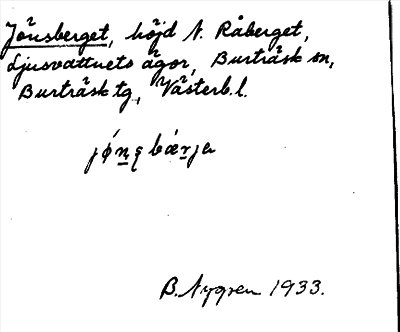 Jönsberget, höjd N. Råberget,
Ljusvattnets ägor, Burträsk sn,
Burträsk tg, Västerb. l.
B. Nygren 1933.